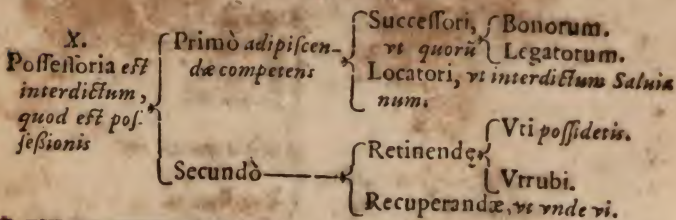 X.
Poſſeſſoria eſt
interdictum,
quod eſt poſ-
ſeßionis
Primò adipiſcen-
dæ competens
Succeſſori,
vt quorũ
Bonorum.
Legatorum.
Locatori, vt interdictum Saluia
num.
Secundò
Retinendę
Vti poſſidetis.
Vtrubi.
Recuperandæ, vt vnde vi.